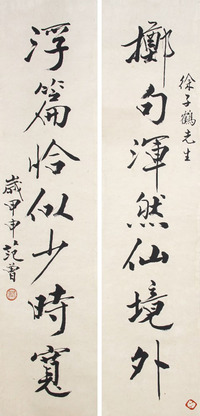 徐子鶴先生
擲句渾然仙境外
浮篇恰似少時寬
歲甲申范曾